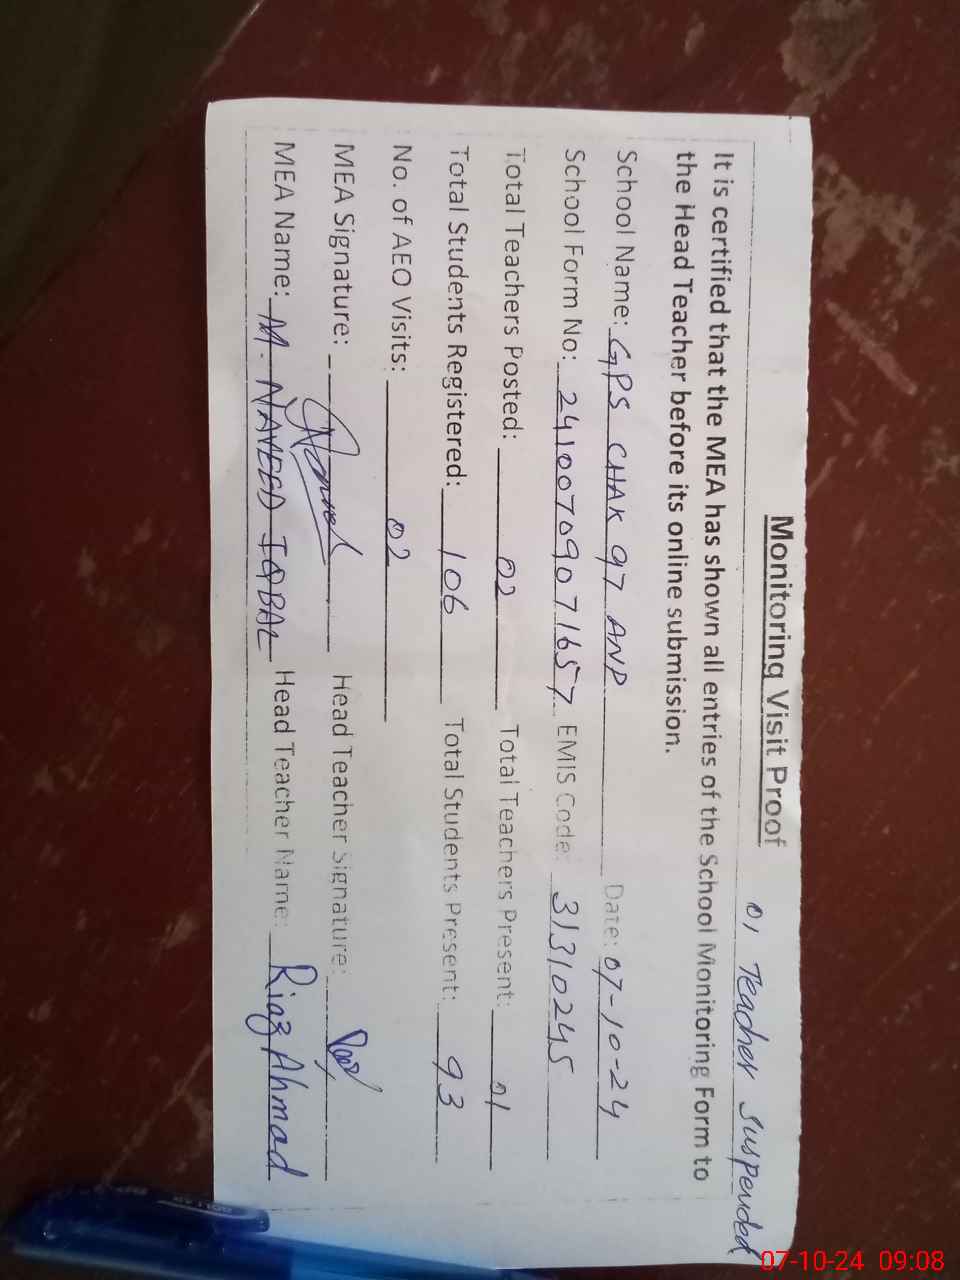 Monitoring Visit Proof
01 Teacher suspended
It is certified that the MEA has shown all entries of the School Monitoring Form to
the Head Teacher before its online submission.
School Name: GPS CHAK 97 ANP Date: 07-10-24
School Form No: 24100709071657 EMIS Code: 31310245
Total Teachers Posted: 02 Total Teachers Present: 01
Total Students Registered: 106 Total Students Present: 93
No. of AEO Visits: 02
MEA Signature: Naveed Head Teacher Signature:
MEA Name: M. NAVEED IQBAL Head Teacher Name: Riaz Ahmad
07-10-24 09:08